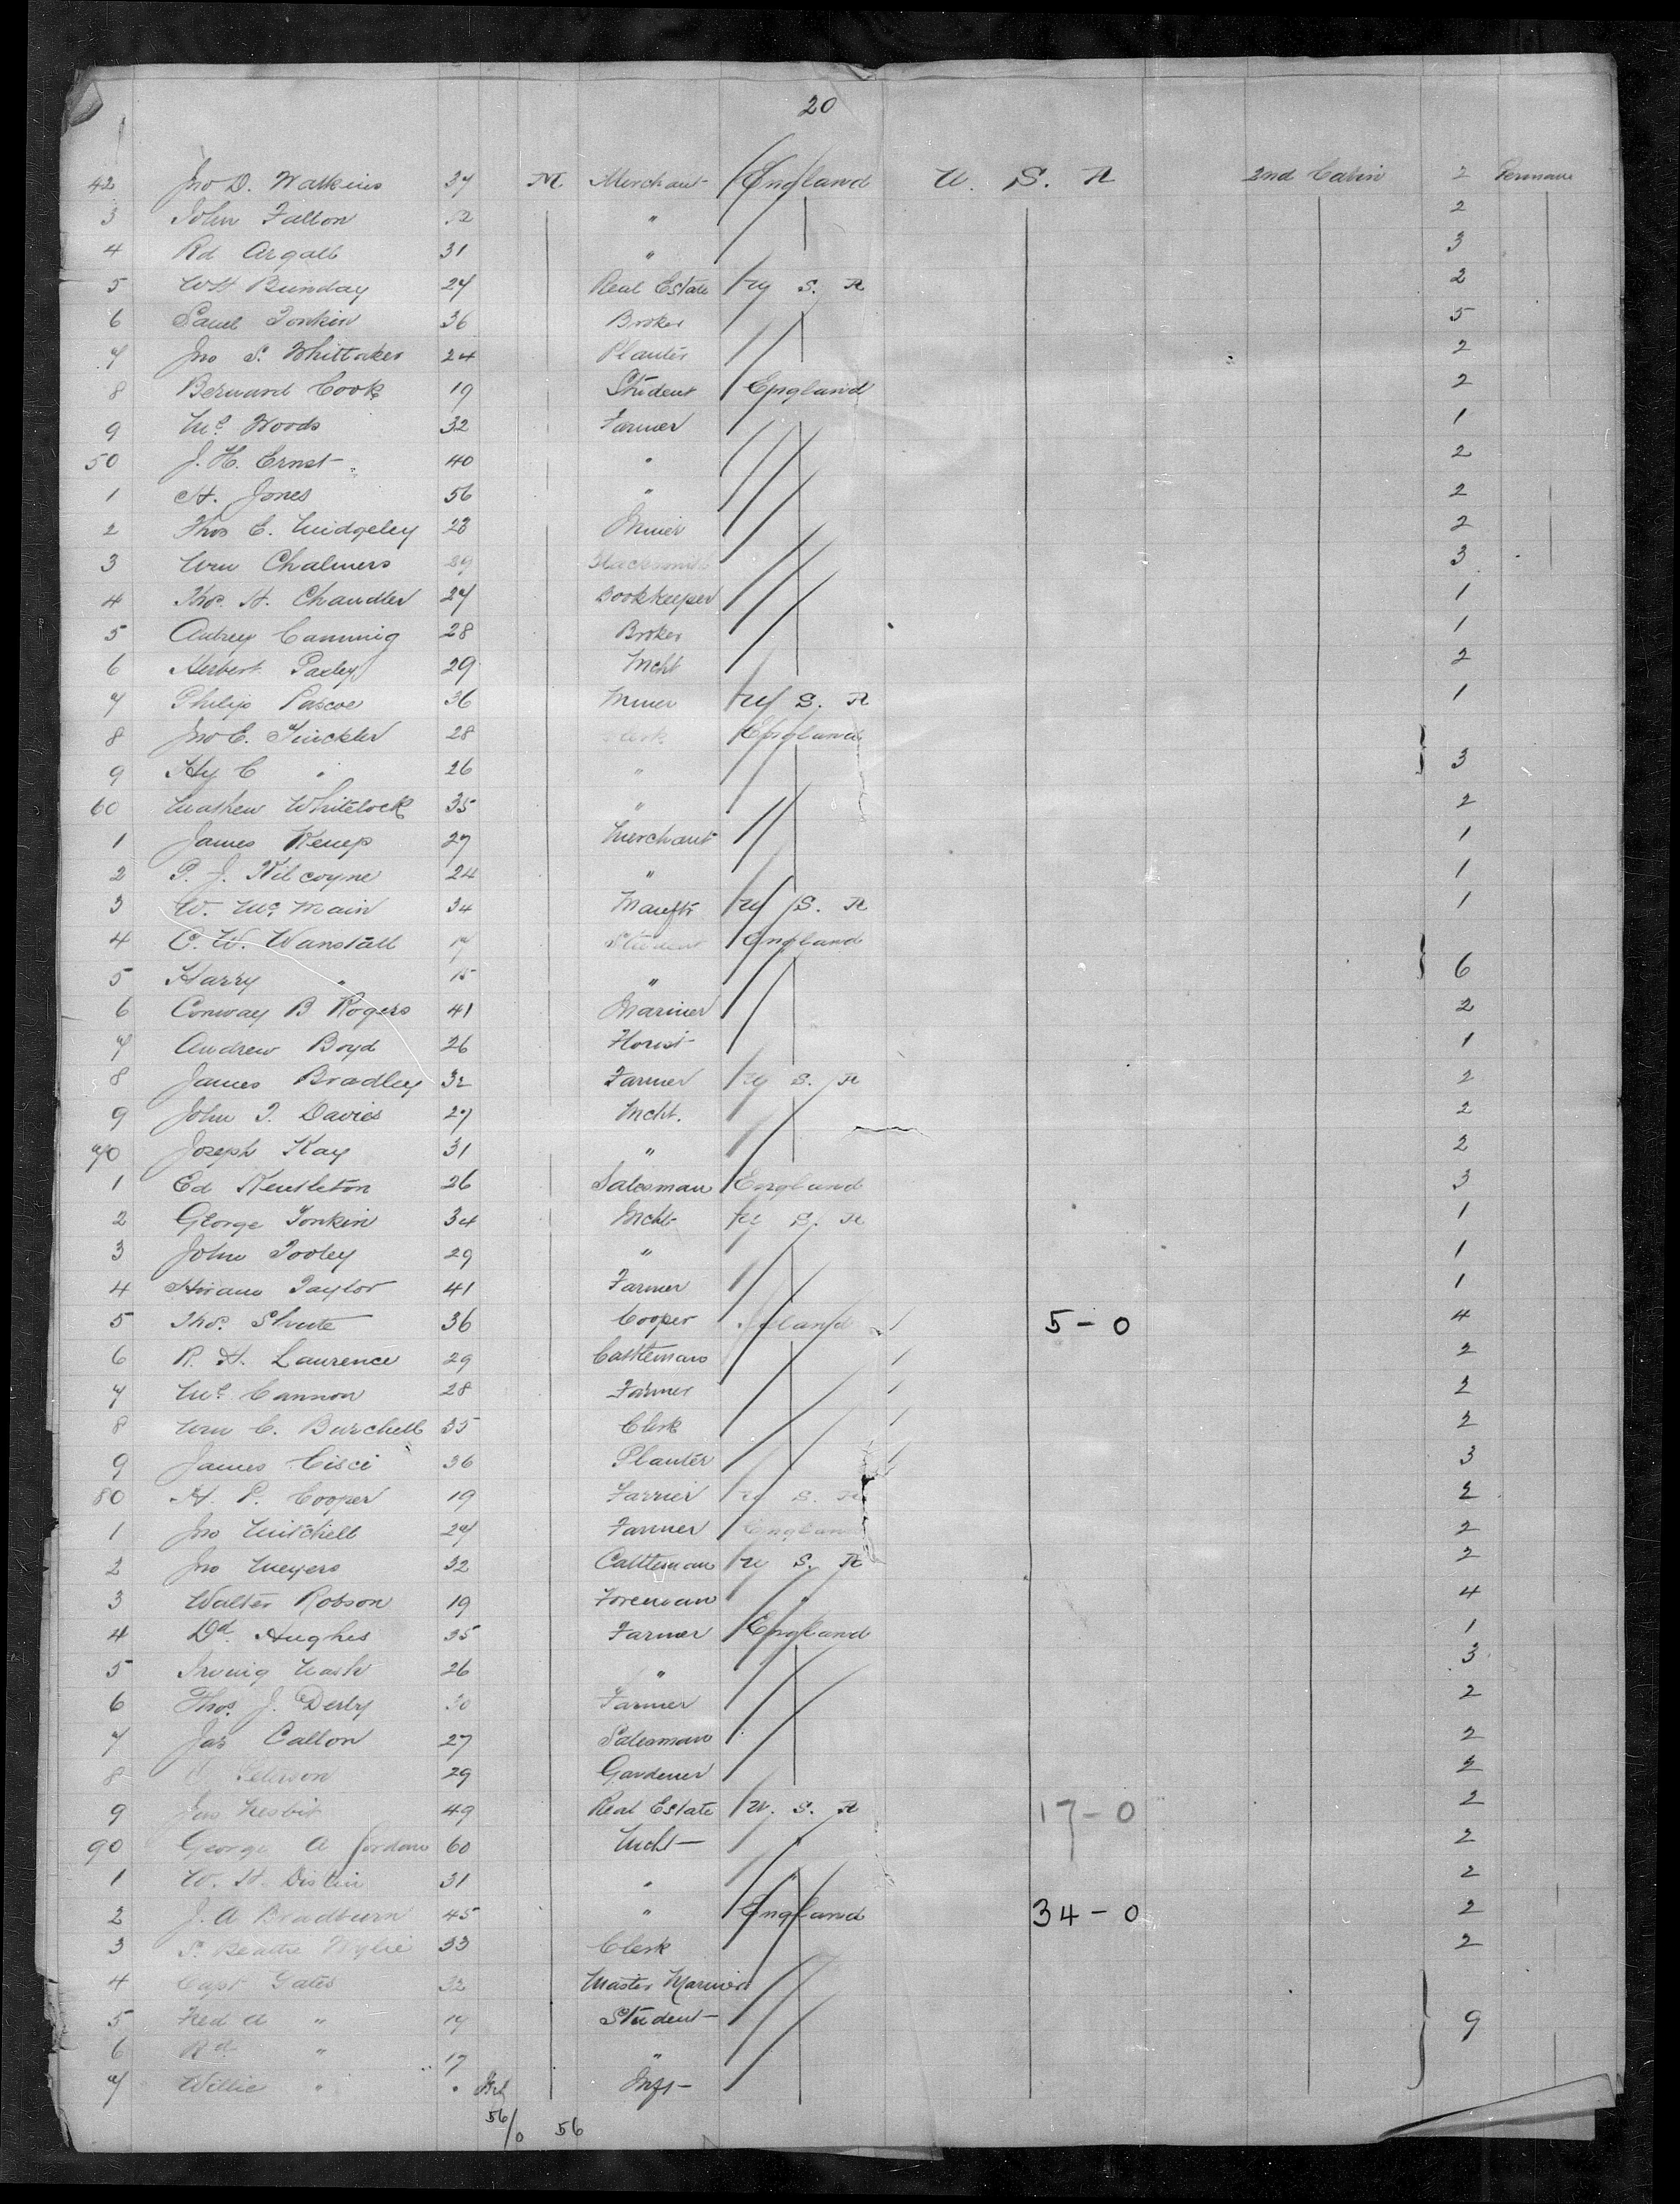 20
42 Jno D. Watkins 37 M Merchant England U. S. A 2nd Cabin 2
3 John Fallon 2 " 2
4 Rd Argall 31 " 3
5 WH Bunday 27 Real Estate U S. A 2
6 Saml Tonkin 36 Broker 5
7 Jno S. Whittaker 24 Planter 2
8 Bernard Cook 19 Student England 2
9 Woods 32 Farmer 1
50 J. H. Ernst 40 " 2
1 H. Jones 56 " 2
2 Thos E. Midgeley 28 Miner 2
3 Wm Chalmers 29 Blacksmith 3
4 Thos. H. Chandler 27 Bookkeeper 1
5 Aubrey Canning 28 Broker 1
6 Herbert Paxley 29 Mcht 2
7 Philip Pascoe 36 Miner U S. A 1
8 Jno E. Tinckler 28 Clerk England
9 Hy C " 26 " } 3
60 Mathew Whitelock 35 " 2
1 James Kemp 27 Merchant 1
2 P. J. Kilcoyne 24 " 1
3 W. Mc Main 34 Manftr U S. A 1
4 C. W. Wanstall 17 Student England
5 Harry " 15 " } 6
6 Conway B Rogers 41 Mariner 2
7 Andrew Boyd 26 Florist 1
8 James Bradley 32 Farmer U S. A 2
9 John T. Davies 27 Mcht. 2
70 Joseph Kay 31 " 2
1 Ed 26 Salesman England 3
2 George Tonkin 34 Mcht U S. A 1
3 John Tooley 29 " 1
4 Hiram Taylor 41 Farmer 1
5 Thos. Shute 36 Cooper Ireland 1 5-0 4
6 R. H. Laurence 29 Cattleman 1 2
7 Cannon 28 Farmer 1 2
8 Wm C. Burchell 35 Clerk 1 2
9 James Cisci 36 Planter 1 3
80 H. P. Cooper 19 Farrier U S. A 2
1 Jno Mitchell 27 Farmer England 2
2 Jno Meyers 32 Cattleman U S. A 2
3 Walter Robson 19 Foreman 4
4 Dd. Hughes 35 Farmer England 1
5 Irving Nash 26 " 3
6 Thos. J. Derby 30 Farmer 2
7 Jas Callon 27 Salesman 2
8 Peterson 29 Gardener 2
9 Jas Nesbit 49 Real Estate U. S. A 17-0 2
90 George A Jordan 60 Mcht 2
1 W. H. Distin 31 " 2
2 J. A Bradburn 45 " England 34-0 2
3 Beattie Wylie 33 Clerk 2
4 Capt Yates 32 Master Mariner
5 Fred A " 19 Student } 9
6 Rd. " 17 "
7 Willie " Inft
56/0 56